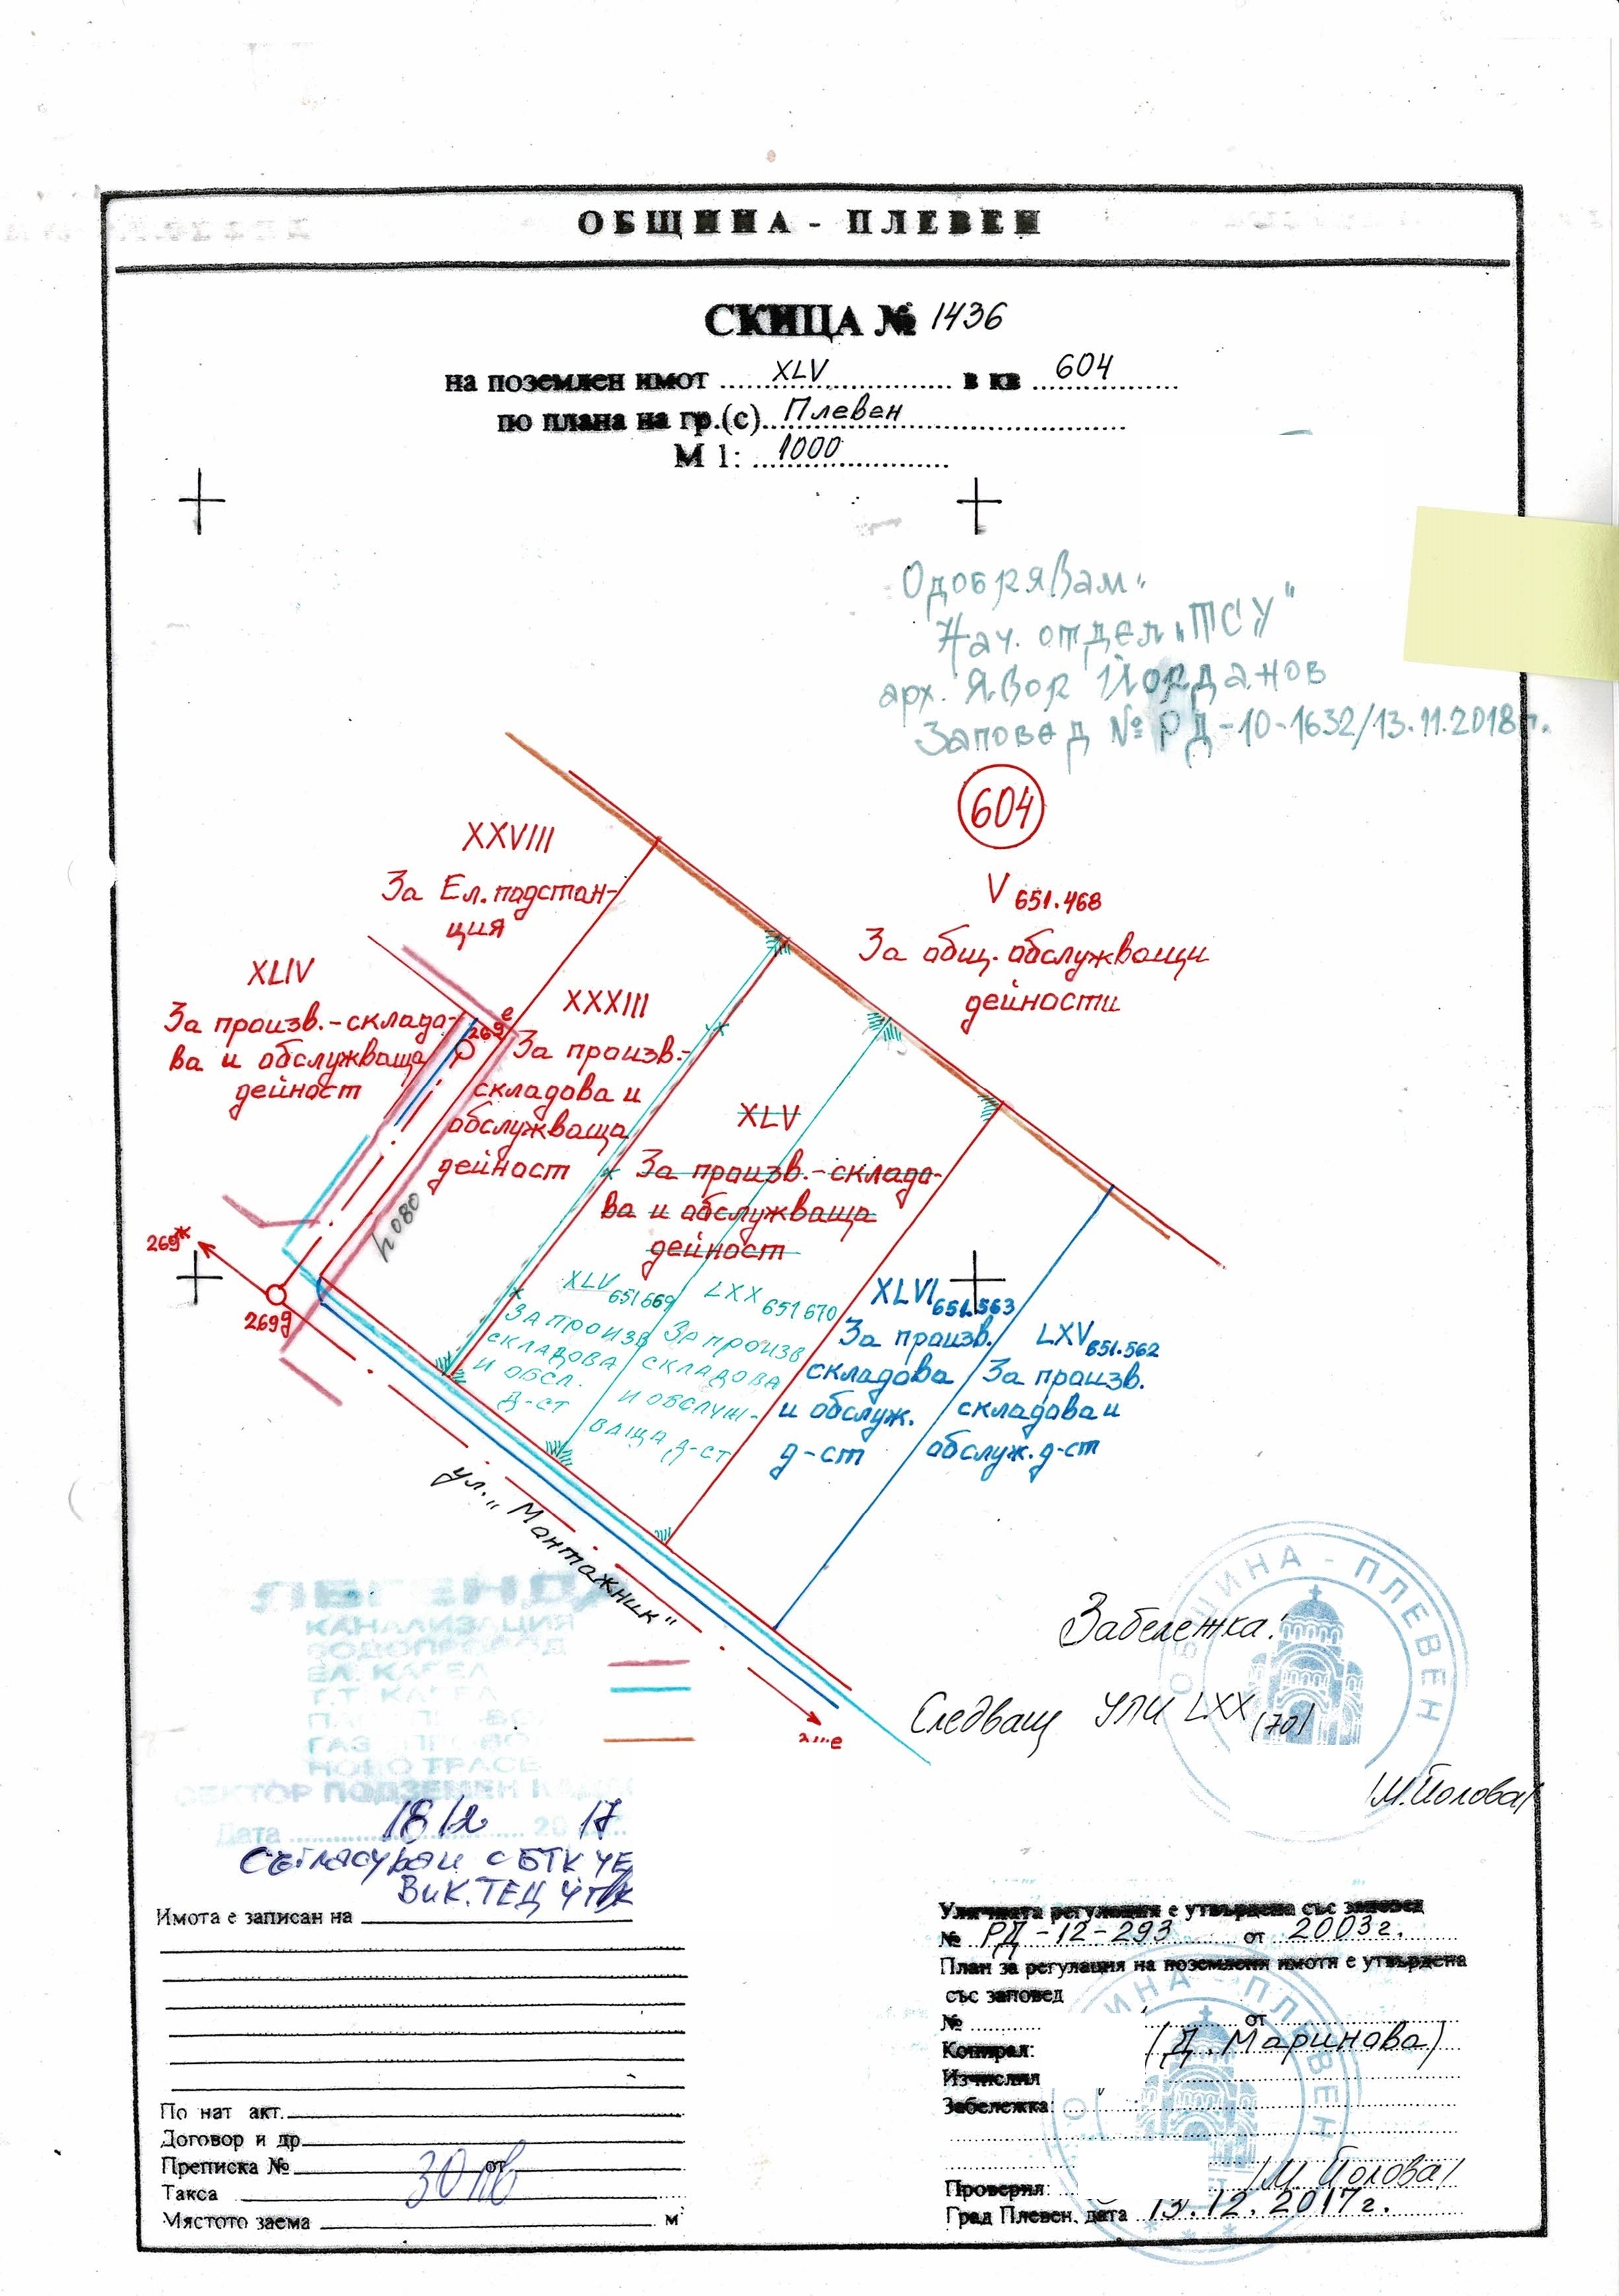 ОБЩИНА - ПЛЕВЕН
СКИЦА № 1436
на поземлен имот XLV в кв 604
по плана на гр.(с) Плевен
М 1: 1000
Одобрявам:
Нач. отдел „ТСУ"
арх. Явор Йорданов
Заповед № РД-10-1632/13.11.2018г.
604
XXVIII
За Ел. подстан-
ция
V 651.468
За общ. обслужващи
дейности
XLIV
За произв.-складо-
ва и обслужваща
дейност
269е
XXXIII
За произв.-
складова и
обслужваща
дейност
XLV
За произв.-складо-
ва и обслужваща
дейност
h080
269ж
269д
XLV 651669
За произв
складова
и обсл.
д-ст
LXX 651670
За произв
складова
и обслуж-
ваща д-ст
XLVI 651.563
За произв.
складова
и обслуж.
д-ст
LXV 651.562
За произв.
складова и
обслуж. д-ст
ул. „Монтажник"
ЛЕГЕНДА
КАНАЛИЗАЦИЯ
ВОДОПРОВОД
ЕЛ. КАБЕЛ
Т.Т. КАБЕЛ
НОВО ТРАСЕ
СЕКТОР ПОДЗЕМЕН
Дата 18/2 2017
Съгласуван с БТК ЧЕ
ВиК. ТЕЦ
Забележка:
Следващ УПИ LXX /70/
/М. Йолова/
ОБЩИНА - ПЛЕВЕН
Имота е записан на
По нат акт.
Договор и др
Преписка № от
Такса 30 лв
Мястото заема м²
Уличната регулация е утвърдена със заповед
№ РД-12-293 от 2003г.
План за регулация на поземлени имоти е утвърдена
със заповед
№ от
Копирал: (Д. Маринова)
Изчислил
Забележка:
Проверил: /М. Йолова/
Град Плевен, дата 13.12.2017г.
ОБЩИНА - ПЛЕВЕН